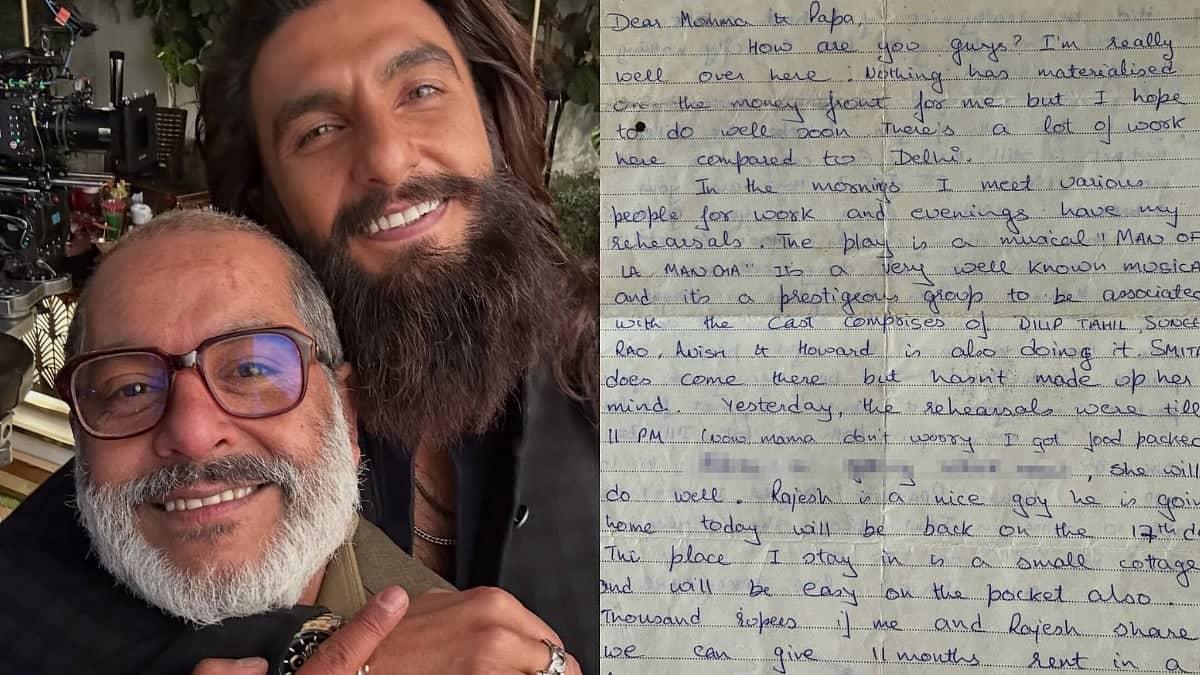 Dear Momma & Papa,
How are you guys? I'm really
well over here. Nothing has materialised
on the money front for me but I hope
to do well soon There's a lot of work
here compared to Delhi.
In the mornings I meet various
people for work and evenings have my
rehearsals. The play is a musical "MAN OF
LA MANCHA" Its a very well known musica
and its a prestigeous group to be associated
with the cast comprises of DILIP TAHIL, SUNEE
RAO, Avish & Howard is also doing it. SMITA
does come there but hasn't made up her
mind. Yesterday, the rehearsals were till
11 PM (wow mama don't worry I got food packed
, she will
do well. Rajesh is a nice guy he is goin
home today will be back on the 17th
The place I stay in is a small cottage
and will be easy on the pocket also.
Thousand rupees if me and Rajesh share
we can give 11 months rent in a